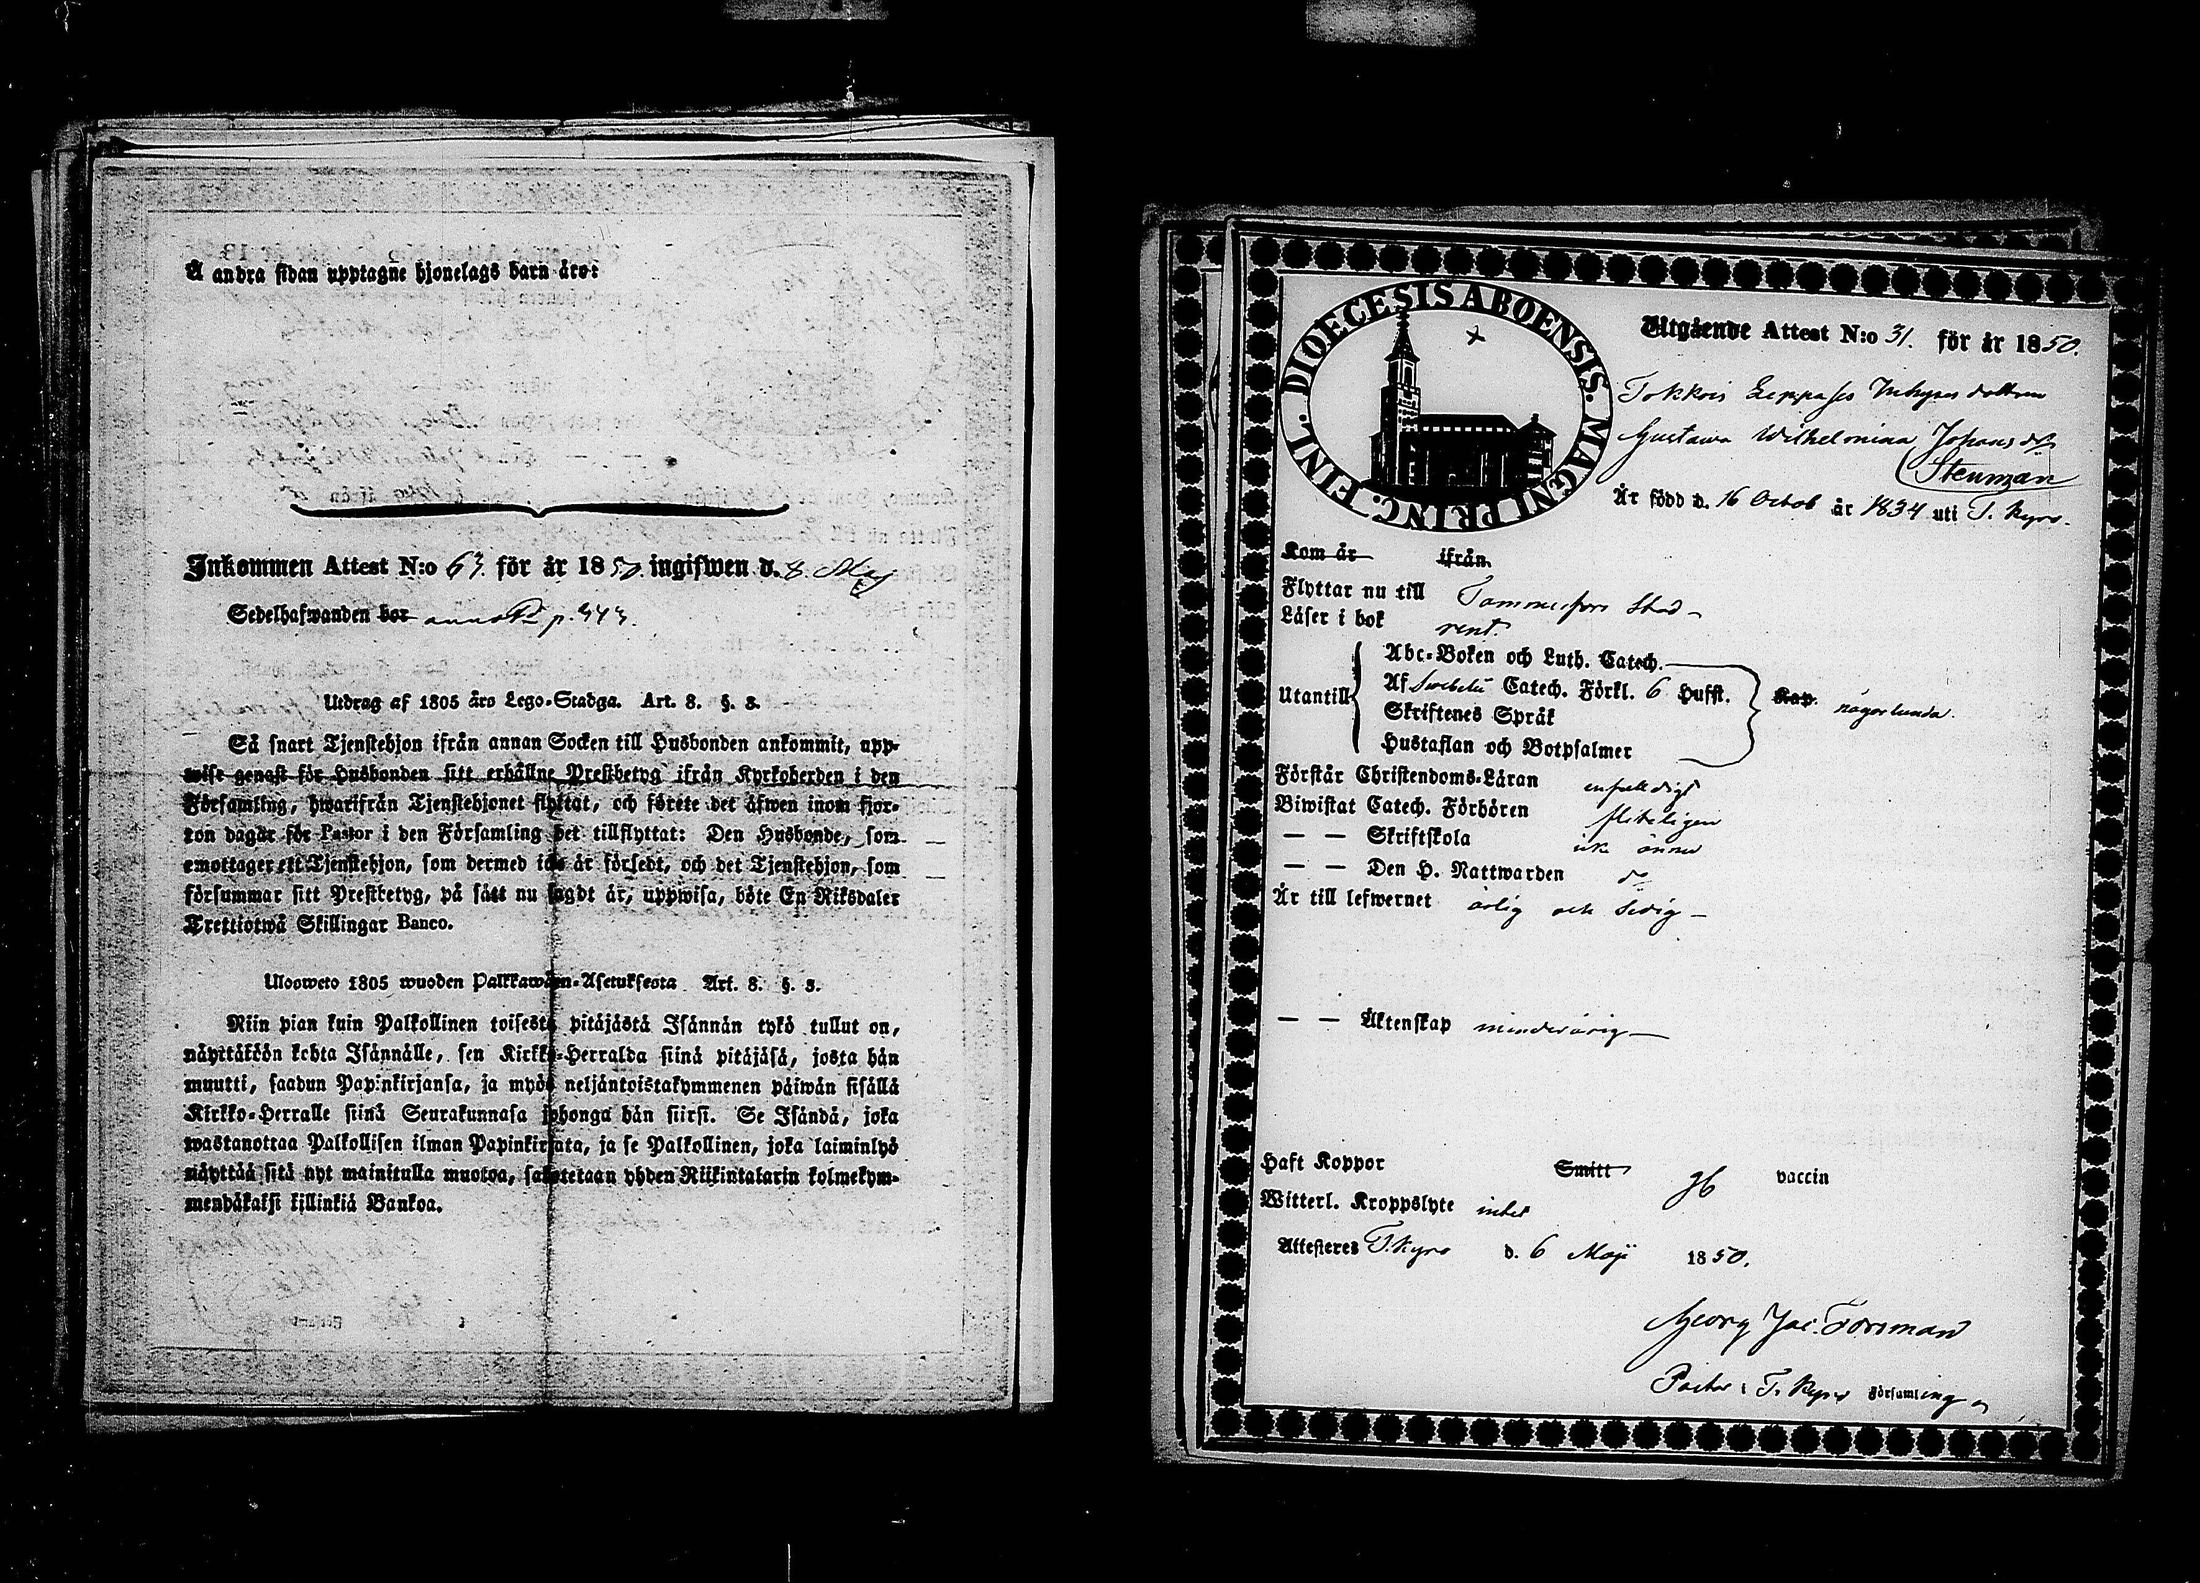 Å andra sidan upptagne hjonelags barn äro:
Inkommen Attest N:o 63. för år 1850. ingifwen d. 8. Maj
Sedelhafwanden bor p. 443.
Utdrag af 1805 års Lego-Stadga. Art. 8. §. 3.
Så snart Tjenstehjon ifrån annan Socken till Husbonden ankommit, upp-
wise genast för Husbonden sitt erhållne Prestbetyg ifrån Kyrkoherden i den
Församling, hwarifrån Tjenstehjonet flyttat, och förete det äfwen inom fjor-
ton dagar för Pastor i den Församling det tillflyttat: Den Husbonde, som
emottager ett Tjenstehjon, som dermed icke är försedt, och det Tjenstehjon, som
försummar sitt Prestbetyg, på sätt nu sagdt är, uppwisa, böte En Riksdaler
Trettiotwå Skillingar Banco.
Ulosweto 1805 wuoden Palkkawäen-Asetuksesta Art. 8. §. 3.
Niin pian kuin Palkollinen toisesta pitäjästä Isännän tykö tullut on,
näyttäköön kohta Isännälle, sen Kirkko-Herralda siinä pitäjäsä, josta hän
muutti, saadun Papinkirjansa, ja myös neljäntoistakymmenen päiwän sisällä
Kirkko-Herralle siinä Seurakunnasa johonga hän siirsi. Se Isändä, joka
wastanottaa Palkollisen ilman Papinkirjata, ja se Palkollinen, joka laiminlyö
näyttää sitä nyt mainitulla muotoa, sakotetaan yhden Riikintalarin kolmekym-
mendäkaksi killinkiä Bankoa.
DIOECESIS ABOENSIS. MAGNI PRINC. FINL.
Utgående Attest N:o 31. för år 1850.
Tokkois Leppases Inhyses dottren
Gustawa Wilhelmina Johansdr
(Stenman
Är född d. 16 Octob år 1834 uti T. Kyro.
Kom år ifrån
Flyttar nu till Tammerfors Stad
Läser i bok rent.
Utantill
Abc-Boken och Luth. Catech.
Af Swebelii Catech. Förkl. 6 Hufst. Kap. någorlunda.
Skriftenes Språk
Hustaflan och Botpsalmer
Förstår Christendoms-Läran enfaldigt
Biwistat Catech. Förhören fliteligen
— — Skriftskola ick ännu
— — Den H. Nattwarden do
Är till lefwernet ärlig och sedig
— — Äktenskap minderårig
Haft Koppor Smitt gb vaccin
Witterl. Kroppslyte intet
Attesteres T. Kyro d. 6 Maji 1850.
Georg Jac. Forsman
Pastor i T. Kyro Församling